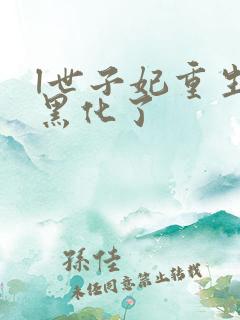 1世子妃重生
黑化了
孫佳
未经同意禁止转载